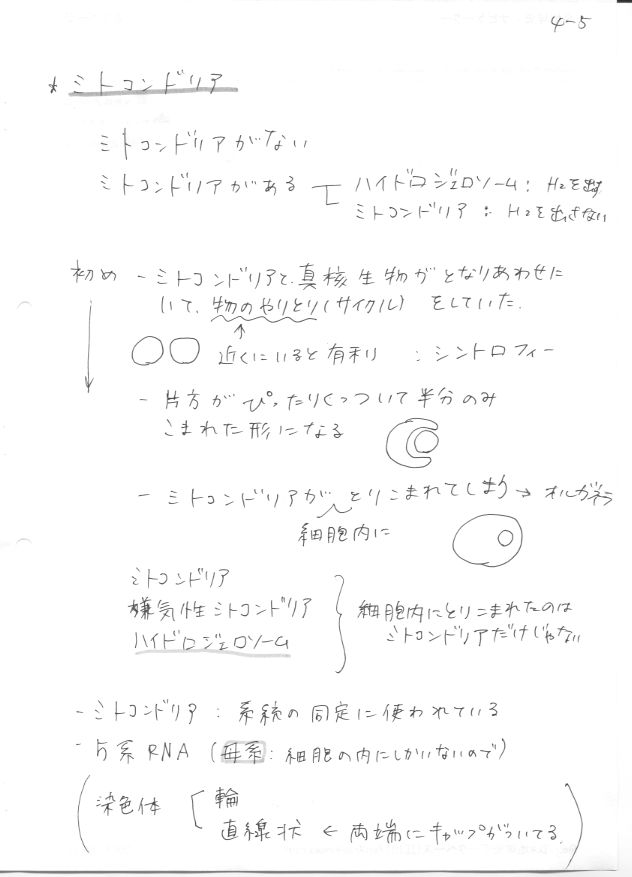 4-5
* ミトコンドリア
ミトコンドリアがない
ミトコンドリアがある ハイドロジェロソーム: H2を出す
ミトコンドリア: H2を出さない
初め - ミトコンドリアと、真核生物がとなりあわせに
いて、物のやりとり(サイクル) をしていた。
↑
近くにいると有利 : シントロフィー
- 片方がぴったりくっついて半分のみ
こまれた形になる
- ミトコンドリアが とりこまれてしまう → オルガネラ
細胞内に
ミトコンドリア
嫌気性ミトコンドリア 細胞内にとりこまれたのは
ハイドロジェロソーム ミトコンドリアだけじゃない
- ミトコンドリア : 系統の同定に使われている
- 系RNA (母系: 細胞の内にしかいないので)
(染色体 輪
直線状 ← 両端にキャップがついてる。)